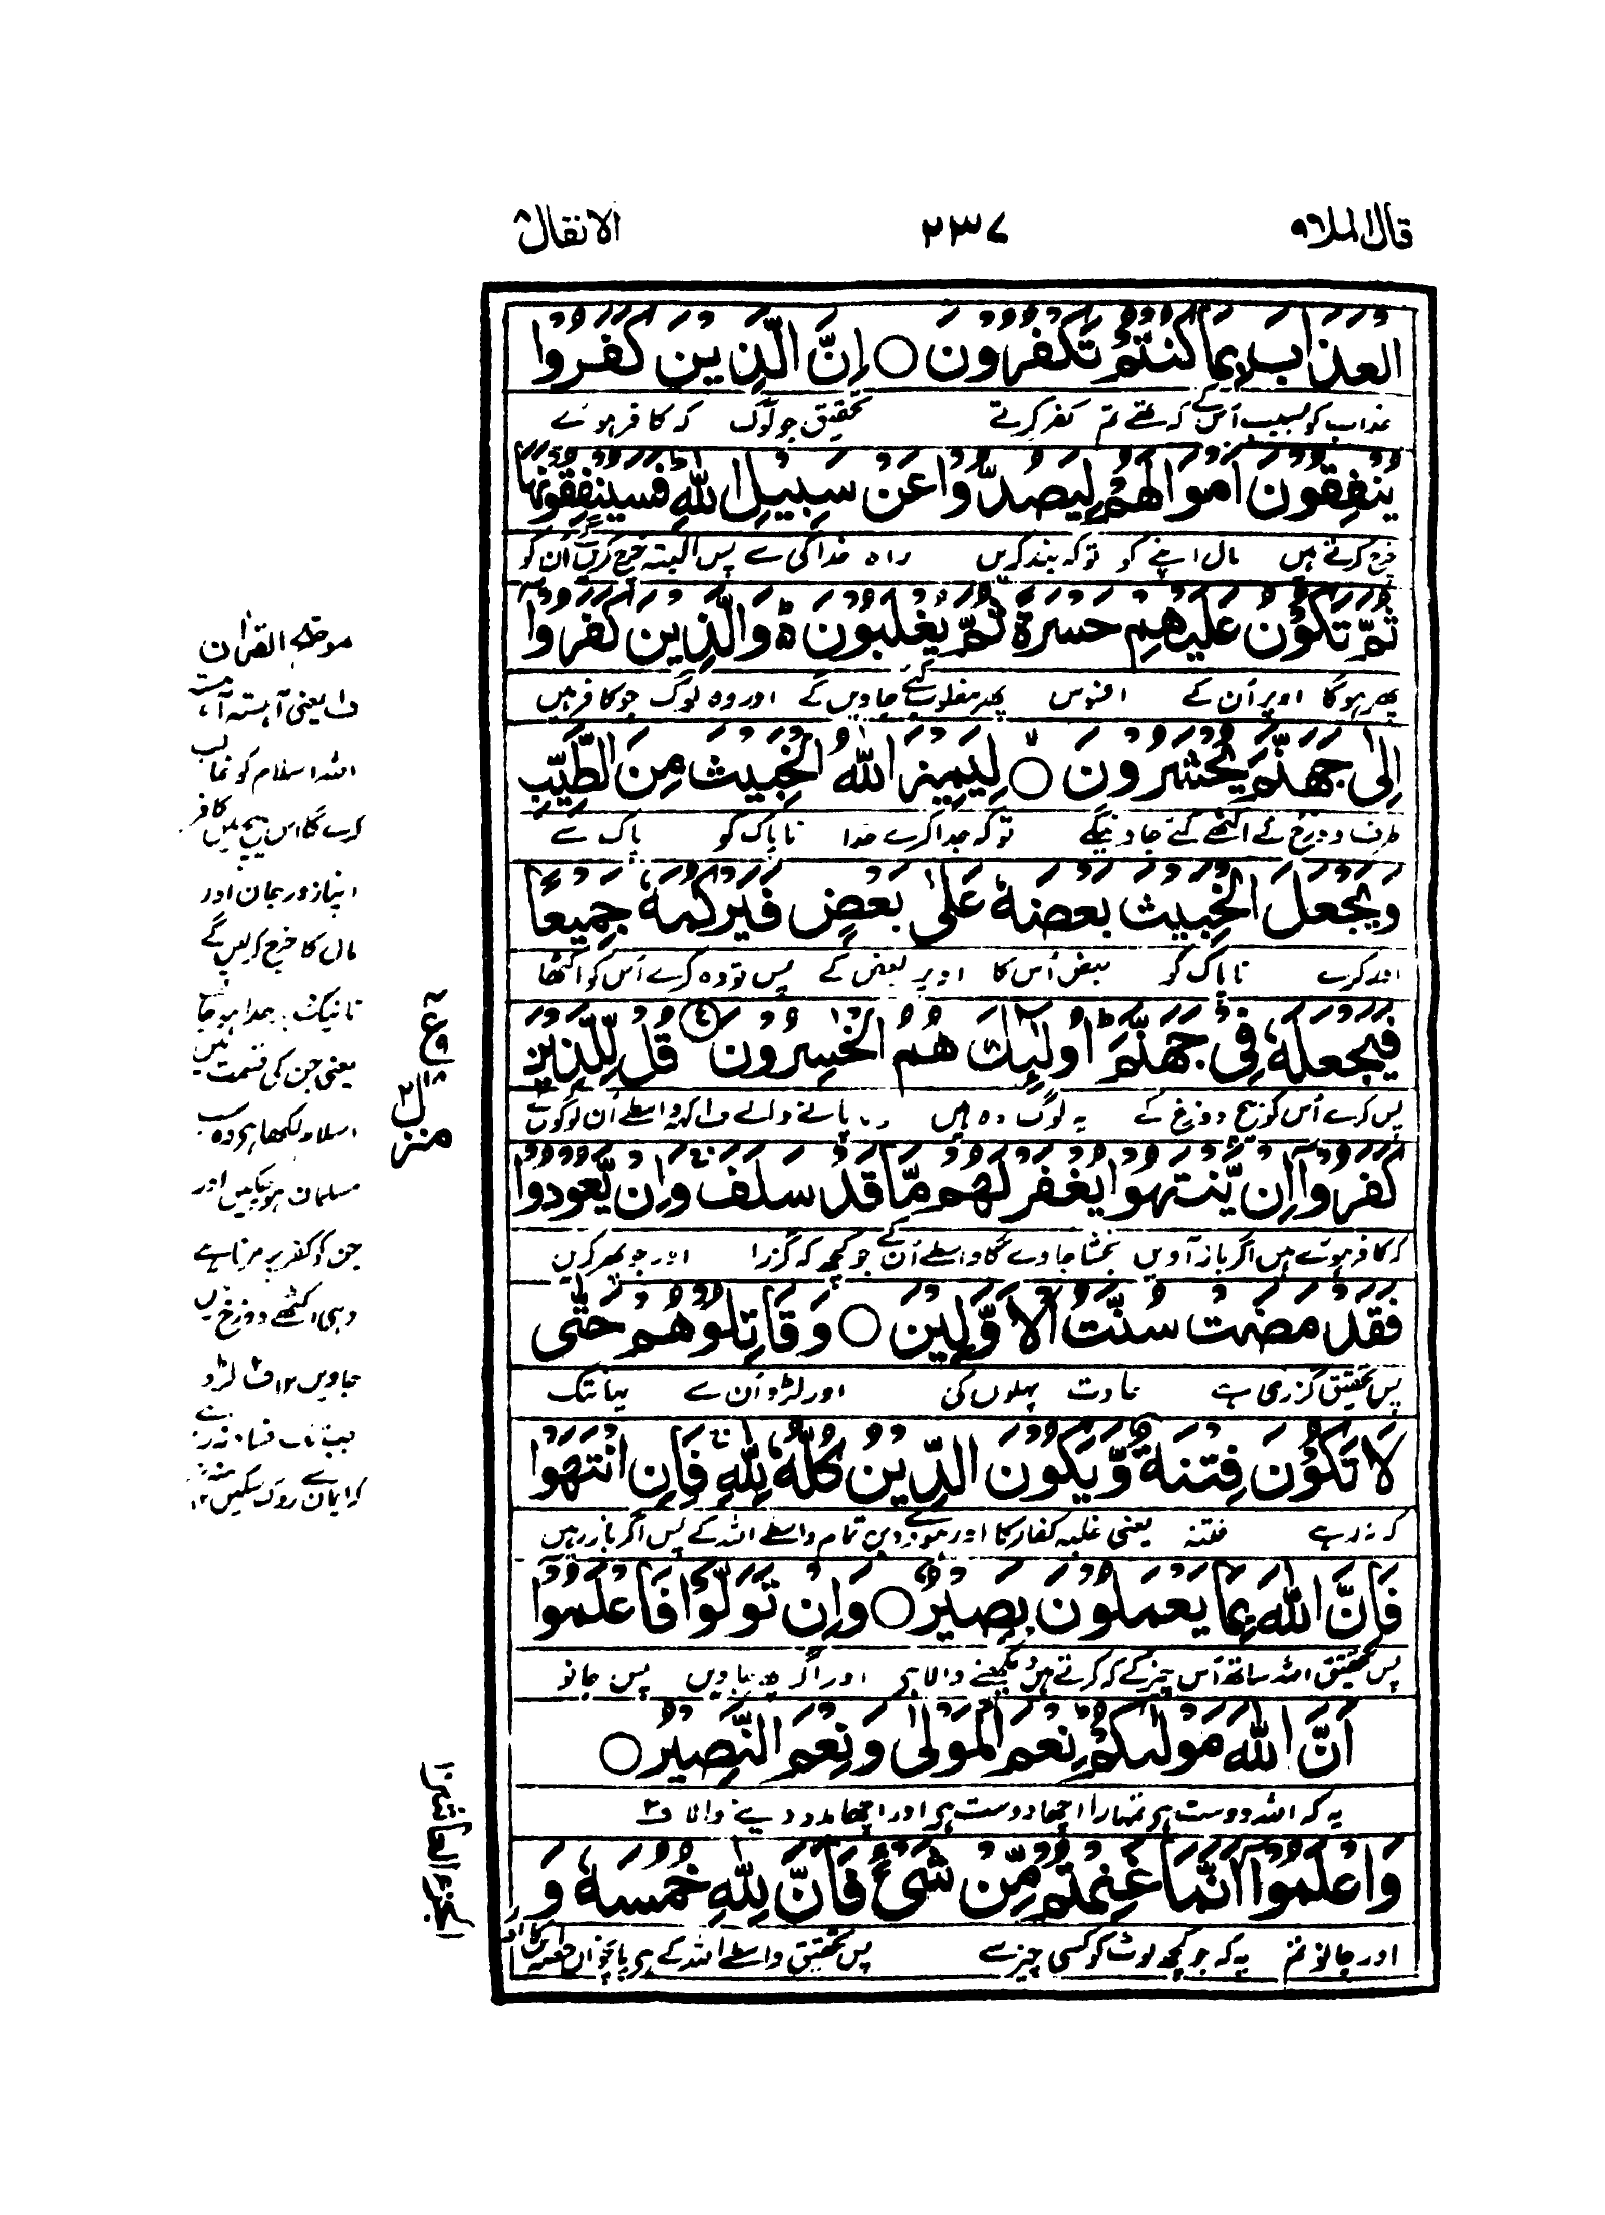 قال الملا ٩
٢٣٧
الانفال ٨
الْعَذَابَ بِمَا كُنْتُمْ تَكْفُرُوْنَ ○ اِنَّ الَّذِيْنَ كَفَرُوْا
عذاب کو بسبب اُس کے کہ تھے تم کفر کرتے تحقیق جو لوگ کہ کافر ہوئے
يُنْفِقُوْنَ اَمْوَالَهُمْ لِيَصُدُّوْا عَنْ سَبِيْلِ اللّٰهِ فَسَيُنْفِقُوْنَهَا
خرچ کرتے ہیں مال اپنے کو توکہ بند کریں راہ خدا کی سے پس البتہ خرچ کرینگے اُن کو
ثُمَّ تَكُوْنُ عَلَيْهِمْ حَسْرَةً ثُمَّ يُغْلَبُوْنَ ؕ وَالَّذِيْنَ كَفَرُوْٓا
پھر ہوگا اوپر اُن کے افسوس پھر مغلوب کیے جاویں گے اور وہ لوگ جو کافر ہیں
اِلٰى جَهَنَّمَ يُحْشَرُوْنَ ○ لِيَمِيْزَ اللّٰهُ الْخَبِيْثَ مِنَ الطَّيِّبِ
طرف دوزخ کے اکٹھے کیے جاوینگے توکہ جدا کرے خدا ناپاک کو پاک سے
وَيَجْعَلَ الْخَبِيْثَ بَعْضَهٗ عَلٰى بَعْضٍ فَيَرْكُمَهٗ جَمِيْعًا
اور کرے ناپاک کو بعض اُس کا اوپر بعض کے پس تودہ کرے اُس کو اکٹھا
فَيَجْعَلَهٗ فِيْ جَهَنَّمَ ؕ اُولٰٓئِكَ هُمُ الْخٰسِرُوْنَ قُلْ لِّلَّذِيْنَ
پس کرے اُس کو بیچ دوزخ کے یہ لوگ وہ ہیں پانے والے ف١ کہہ واسطے اُن لوگوں کے
كَفَرُوْٓا اِنْ يَّنْتَهُوْا يُغْفَرْ لَهُمْ مَّا قَدْ سَلَفَ وَاِنْ يَّعُوْدُوْا
کہ کافر ہوئے ہیں اگر باز آویں بخشا جاوے گا واسطے اُن کے جو کچھ کہ گزرا اور جو پھر کریں
فَقَدْ مَضَتْ سُنَّتُ الْاَوَّلِيْنَ ○ وَقَاتِلُوْهُمْ حَتّٰى
پس تحقیق گزری ہے عادت پہلوں کی اور لڑو اُن سے یہانتک
لَا تَكُوْنَ فِتْنَةٌ وَّيَكُوْنَ الدِّيْنُ كُلُّهٗ لِلّٰهِ فَاِنِ انْتَهَوْا
کہ نہ رہے فتنہ یعنی غلبہ کفار کا اور ہووے دین تمام واسطے اللہ کے پس اگر باز رہیں
فَاِنَّ اللّٰهَ بِمَا يَعْمَلُوْنَ بَصِيْرٌ ○ وَاِنْ تَوَلَّوْا فَاعْلَمُوْٓا
پس تحقیق اللہ ساتھ اُس چیز کے کہ کرتے ہیں دیکھنے والا ہے اور اگر پھر جاویں پس جانو
اَنَّ اللّٰهَ مَوْلٰىكُمْ نِعْمَ الْمَوْلٰى وَنِعْمَ النَّصِيْرُ ○
یہ کہ اللہ دوست ہے تمہارا اچھا دوست ہے اور اچھا مدد دینے والا ف٢
وَاعْلَمُوْٓا اَنَّمَا غَنِمْتُمْ مِّنْ شَيْءٍ فَاَنَّ لِلّٰهِ خُمُسَهٗ وَ
اور جانو تم یہ کہ جو کچھ لوٹ کو کسی چیز سے پس تحقیق واسطے اللہ کے ہے پانچواں حصہ اُس کا اور
موضح القرآن
ف١ یعنی آہستہ آہستہ
اللہ اسلام کو غالب
کرے گا اس بیچ میں کافر
اپنا زور جان اور
مال کا خرچ کریں گے
تا نیک بد جدا ہو جاویں
یعنی جن کی قسمت میں
اسلام لکھا ہے وہ سب
مسلمان ہو چکیں اور
جن کو کفر پر مرنا ہے
وہی اکٹھے دوزخ میں
جاویں ١٢ ف٢ لڑو
کہ ایمان سے روک سکیں ١٢
ع
منزل ٢
الجزء العاشر ١٠